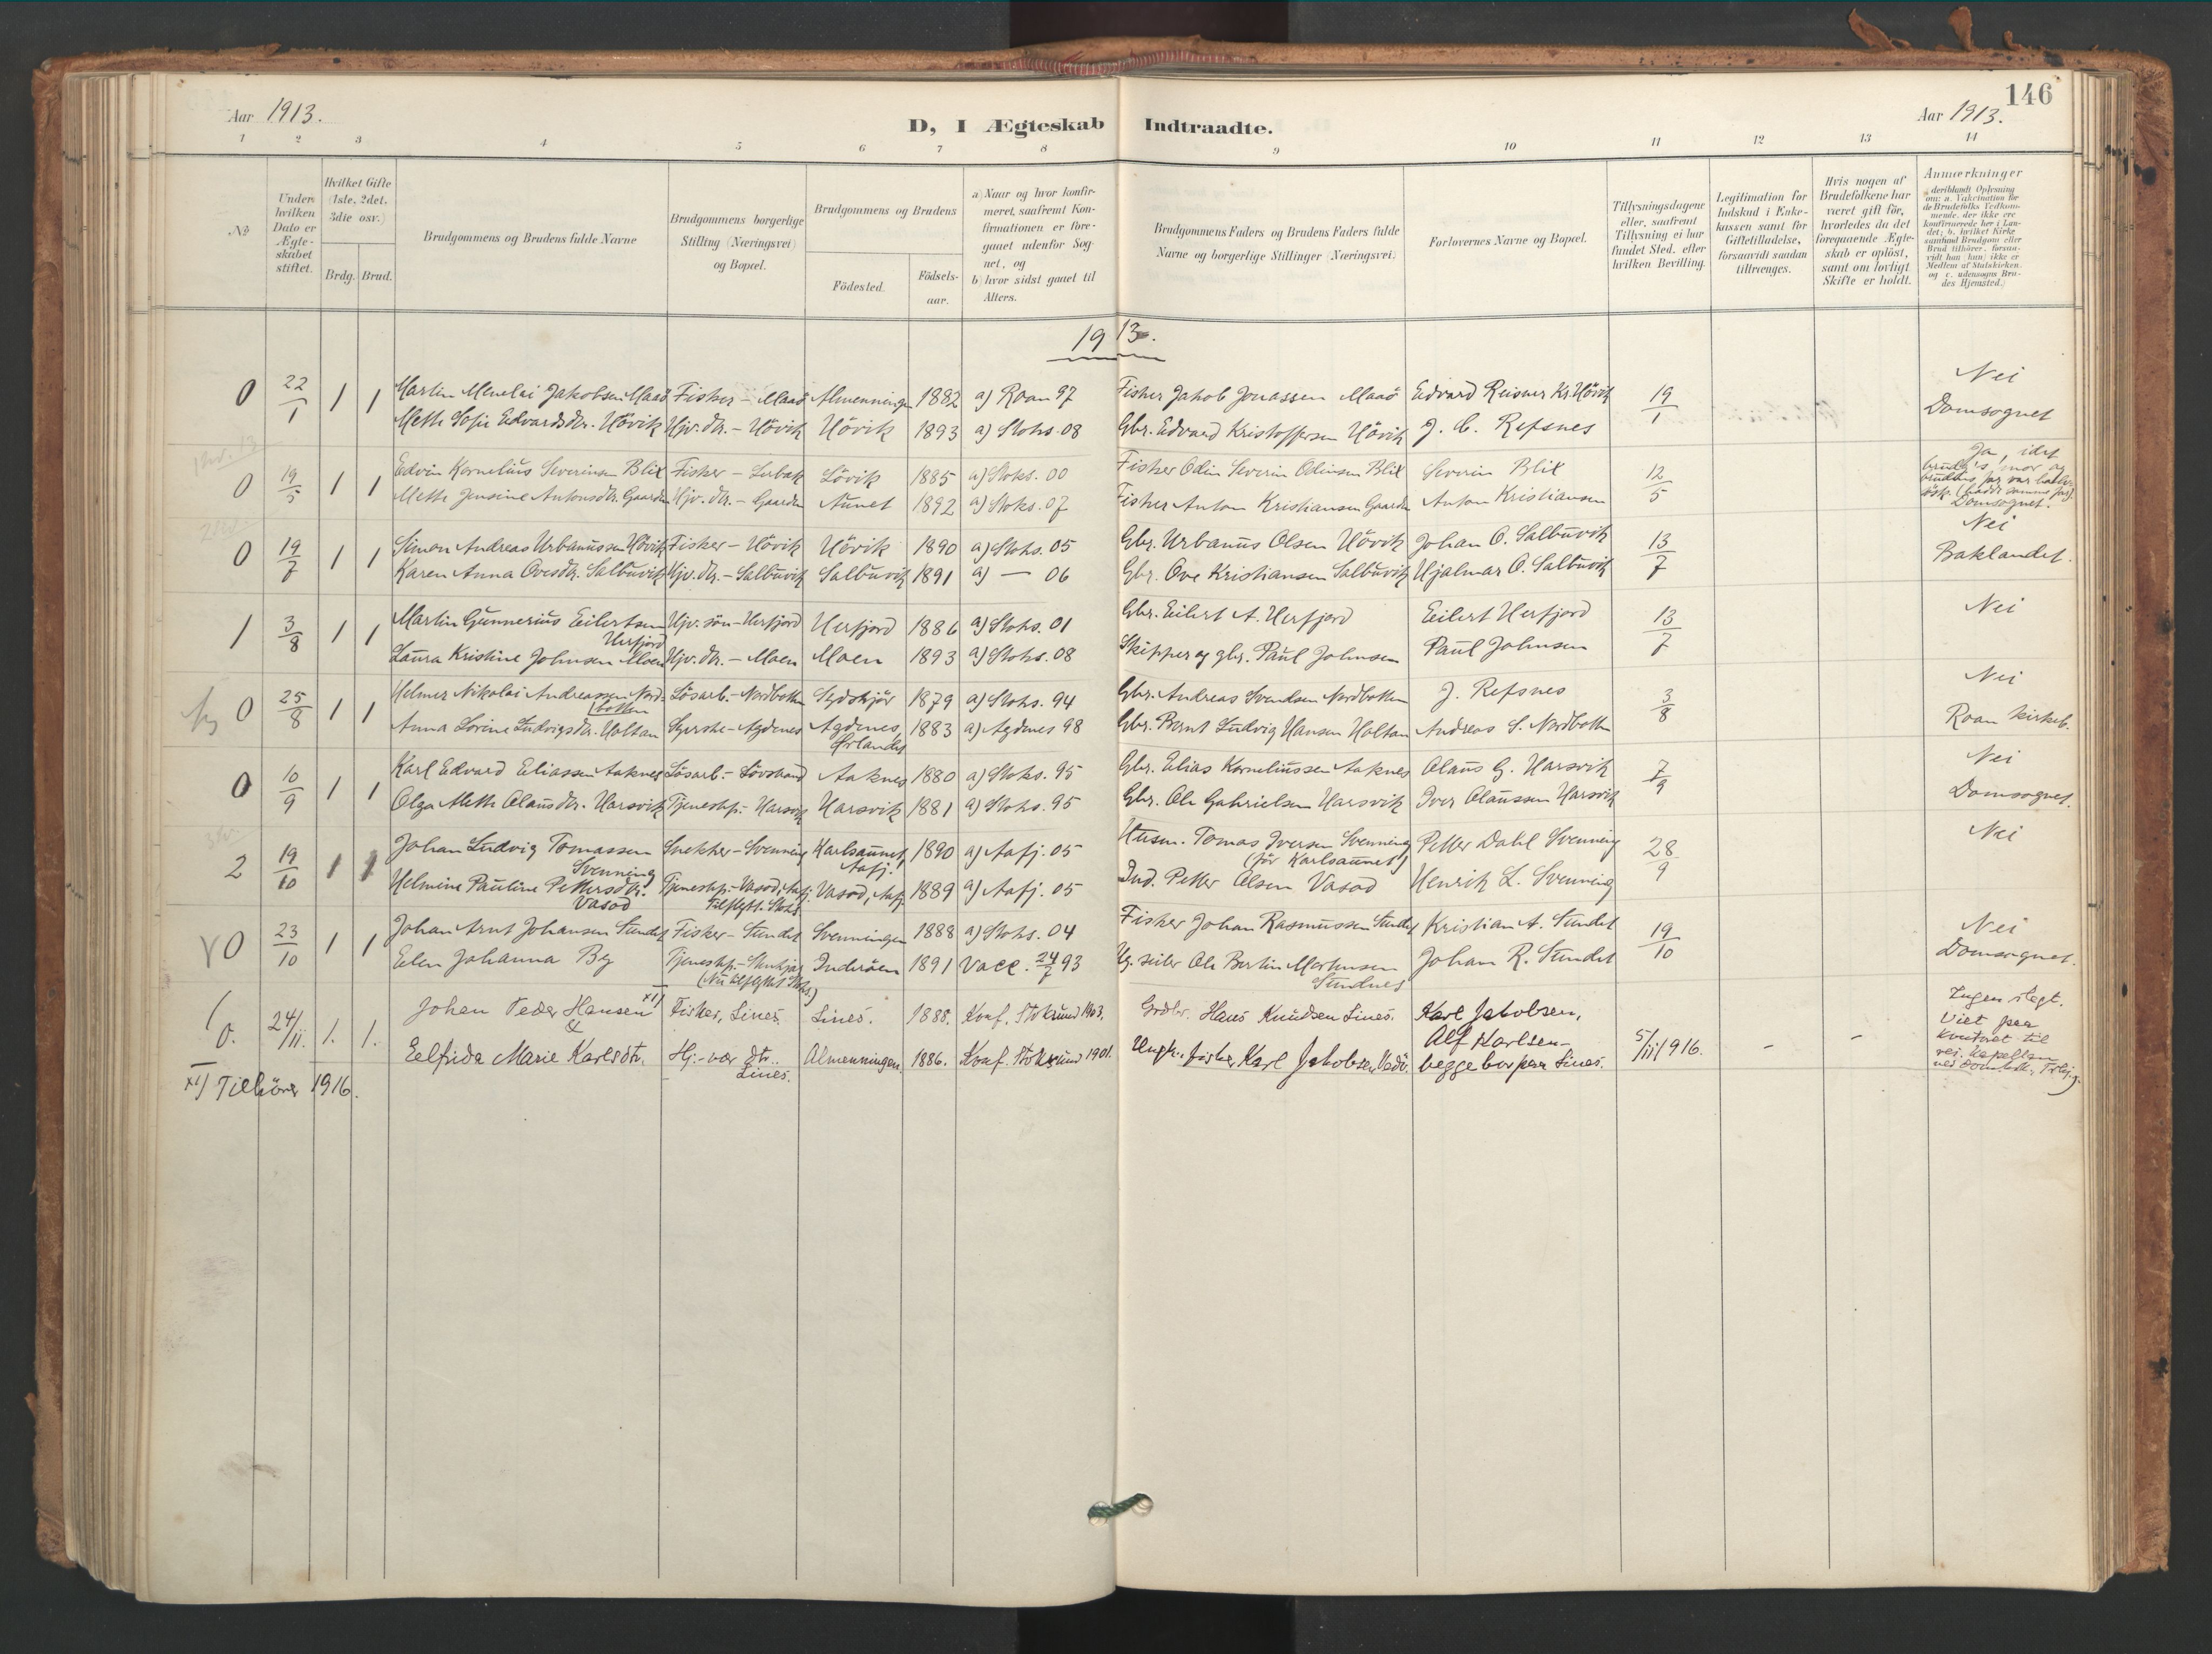 146
Aar 1913.
D, I Ægteskab Indtraadte.
Aar 1913.
1 2 3 4 5 6 7 8 9 10 11 12 13 14
№
Under hvilken Dato er Ægteskabet stiftet.
Hvilket Gifte (1ste, 2det, 3die osv.)
Brdg. Brud.
Brudgommens og Brudens fulde Navne
Brudgommens borgerlige Stilling (Næringsvei) og Bopæl.
Brudgommens og Brudens
Födested. Födselsaar.
a) Naar og hvor konfirmeret, saafremt Konfirmationen er foregaaet udenfor Sognet, og
b) hvor sidst gaaet til Alters.
Brudgommens Faders og Brudens Faders fulde Navne og borgerlige Stillinger (Næringsvei)
Forlovernes Navne og Bopæl.
Tillysningsdagene eller, saafremt Tillysning ei har fundet Sted, efter hvilken Bevilling.
Legitimation for Indskud i Enkekassen samt for Giftetilladelse, forsaavidt saadan tiltrænges.
Hvis nogen af Brudefolkene har været gift för, hvorledes da det foregaaende Ægteskab er oplöst, samt om lovligt Skifte er holdt.
Anmærkninger
deriblandt Oplysning om: a. Vakcination for de Brudefolks Vedkommende, der ikke ere konfirmerede her i Landet; b. hvilket Kirkesamfund Brudgom eller Brud tilhörer, forsaavidt han (hun) ikke er Medlem af Statskirken, og c. udensogns Brudes Hjemsted.)
1913.
0 22/1 1 1 Martin Menelai Jakobsen Maaö Fisker – Maaö Almenningen 1882 a) Roan 97 Fisker Jakob Jonassen Maaö Edvard Reisner Kr. Hövik 19/1 Nei
Meth Sofie Edvardsdtr. Hövik Hjv. dtr. – Hövik Hövik 1893 a) Stoks. 08 Gbr. Edvard Kristoffersen Hövik J. C. Refsnes Domsognet
0 19/5 1 1 Edvin Kornelius Severinsen Blix Fisker – Lövik 1885 a) Stoks. 00 Fisker Odin Severin Odinsen Blix Severin Blix 12/5 Ja, idet
brudg's mor og
brudens far var halv
søsk. (hadde samme far).
Meth Jensine Antonsdtr. Gaarden Hjv. dtr. – Gaarden Aunet 1892 a) Stoks. 07 Fisker Anton Kristiansen Gaarden Anton Kristiansen Domsognet.
0 19/7 1 1 Simon Andreas Urbanussen Hövik Fisker – Hövik Hövik 1890 a) Stoks. 05 Gbr. Urbanus Olsen Hövik Johan O. Salbuvik 13/7 Nei
Karen Anna Ovesdtr. Salbuvik Hjv. dtr. – Salbuvik Salbuvik 1891 a) — 06 Gbr. Ove Kristiansen Salbuvik Hjalmar O. Salbuvik Baklandet.
1 3/8 1 1 Martin Gunnerius Eilertsen Herfjord Hjv. sön – Herfjord Herfjord 1886 a) Stoks. 01 Gbr. Eilert A. Herfjord Eilert Herfjord 13/7 Nei
Laura Kristine Johnsen Moen Hjv. dtr. – Moen Moen 1893 a) Stoks. 08 Skipper og gbr. Paul Johnsen Paul Johnsen
0 25/8 1 1 Helmer Nikolai Andreassen Nordbotten Lösarb. – Nordbotten Sydskjör 1879 a) Stoks. 94 Gbr. Andreas Svendsen Nordbotten J. Refsnes 3/8 Nei
Anna Lorine Ludvigsdtr. Holtan – Agdenes Agdenes, Ørlandet 1883 a) Agdenes 98 Gbr. Bernt Ludvig Hansen Holtan Andreas S. Nordbotten Roan kirkeb.
0 10/9 1 1 Karl Edvard Eliassen Aaknes Lösarb. – Lövstrand Aaknes 1880 a) Stoks. 95 Gbr. Elias Korneliussen Aaknes Olaus G. Harsvik 7/9 Nei
Olga Meth Olausdtr. Harsvik Tjenestep. – Harsvik Harsvik 1881 a) Stoks. 95 Gbr. Ole Gabrielsen Harsvik Iver Olaussen Harsvik Domsognet.
2 19/10 1 1 Johan Ludvig Tomassen Svenning Snekker – Svenning Karlsaunet, Aafj. 1890 a) Aafj. 05 Husm. Tomas Iversen Svenning (för Karlsaunet) Petter Dahl Svenning 28/9 Nei
Helmine Pauline Pettersdtr. Vasöd Tjenestep. – Vasöd, Aafj. Tilflyttet Stoks. Vasöd, Aafj. 1889 a) Aafj. 05 Ind. Petter Olsen Vasöd Henrik L. Svenning
0 23/10 1 1 Johan Arnt Johansen Sundet Fisker – Sundet Svenningen 1888 a) Stoks. 04 Fisker Johan Rasmussen Sundet Kristian A. Sundet 19/10 Nei
Elen Johanna By Tjenestep. – Stenkjær (Nu tilflyttet Stoks.) Inderöen 1891 Vacc. 24/7 93 Ug. seiler Ole Bertin Martinsen Sundnes Johan R. Sundet Domsognet.
0. 24/11. 1. 1. Johan Peder Hansen x1) & Fisker, Lines. Lines. 1888. Konf. Stoksund 1903. Grdbr. Hans Knudsen Lines. Karl Jakobsen, Ingen slegt.
Viet paa
kontoret til
res. kapellan
ved Domk.
Eelfrida Marie Karlsdtr. Hj:-vær. dtr. Lines. Almenningen. 1886. Konf. Stoksund 1901. Ungk., fisker Karl Jakobsen Alf Karlsen – begge bor paa Lines. 5/11 1916. – –
x1) Tilhörer 1916.